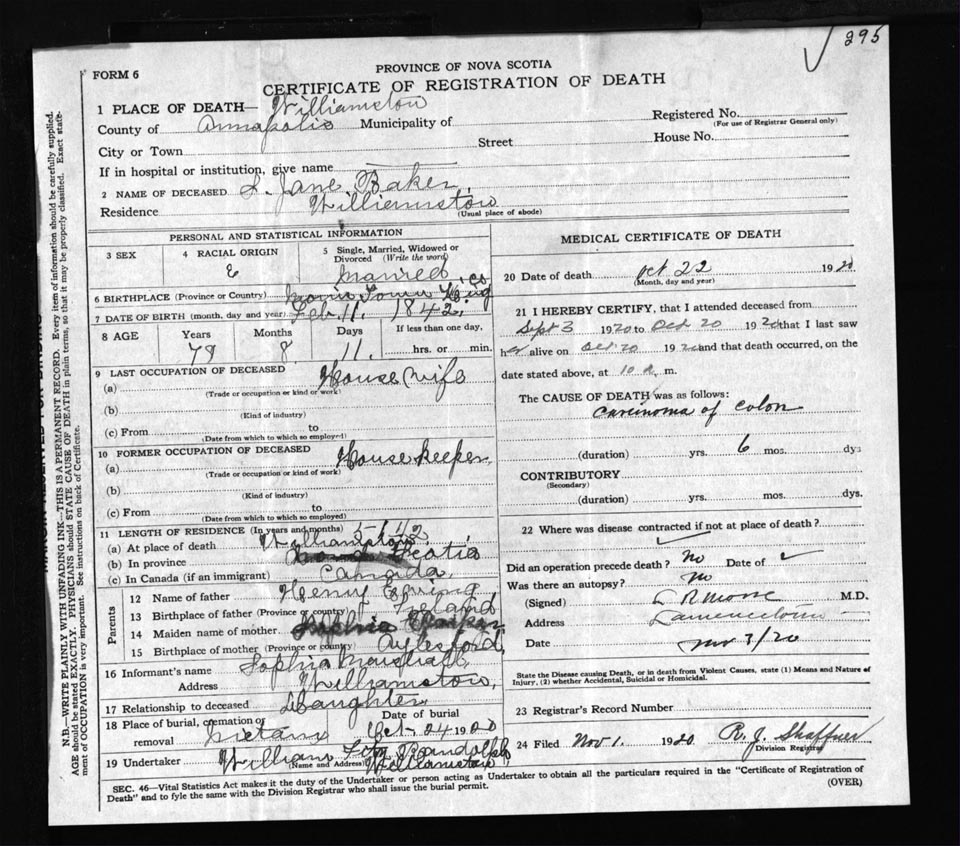 295
FORM 6
PROVINCE OF NOVA SCOTIA
CERTIFICATE OF REGISTRATION OF DEATH
1 PLACE OF DEATH— Williamston
County of Annapolis Municipality of
Registered No.
(For use of Registrar General only)
City or Town Street House No.
If in hospital or institution, give name
2 NAME OF DECEASED Jane Baker
Residence Williamston
(Usual place of abode)
PERSONAL AND STATISTICAL INFORMATION
3 SEX
4 RACIAL ORIGIN
E
5 Single, Married, Widowed or
Divorced (Write the word)
Married
6 BIRTHPLACE (Province or Country)
7 DATE OF BIRTH (month, day and year) Feb 11, 1842,
8 AGE Years Months Days If less than one day,
78 8 11. hrs. or min.
9 LAST OCCUPATION OF DECEASED
(a) House Wife
(Trade or occupation or kind or work)
(b)
(Kind of industry)
(c) From to
(Date from which to which so employed)
10 FORMER OCCUPATION OF DECEASED
(a) House Keeper,
(Trade or occupation or kind of work)
(b)
(Kind of industry)
(c) From to
(Date from which to which so employed)
11 LENGTH OF RESIDENCE (In years and months)
(a) At place of death Williamston
(b) In province Scotia
(c) In Canada (if an immigrant) Canada,
Parents
12 Name of father Henry
13 Birthplace of father (Province or country) Ireland
14 Maiden name of mother
15 Birthplace of mother (Province or country) Aylesford,
16 Informant's name Sophia Marshall
Address Williamston,
17 Relationship to deceased Daughter
18 Place of burial, cremation or
removal
Date of burial
Oct-24 1920
19 Undertaker William Randolph,
(Name and Address) Williamston
MEDICAL CERTIFICATE OF DEATH
20 Date of death Oct 22 1920
(Month, day and year)
21 I HEREBY CERTIFY, that I attended deceased from
Sept 3 1920 to Oct 20 1920 that I last saw
her alive on Oct 20 1920 and that death occurred, on the
date stated above, at 10 a. m.
The CAUSE OF DEATH was as follows:
Carcinoma of Colon
(duration) yrs. 6 mos. dys
CONTRIBUTORY
(Secondary)
(duration) yrs. mos. dys.
22 Where was disease contracted if not at place of death?
Did an operation precede death? No Date of
Was there an autopsy? No
(Signed) L R Morse M.D.
Address Lawrencetown
Date Nov 3/20
State the Disease causing Death, or in death from Violent Causes, state (1) Means and Nature of
Injury, (2) whether Accidental, Suicidal or Homicidal.
23 Registrar's Record Number
24 Filed Nov 1. 1920 R. J. Shaffner
Division Registrar
SEC. 46—Vital Statistics Act makes it the duty of the Undertaker or person acting as Undertaker to obtain all the particulars required in the "Certificate of Registration of
Death" and to fyle the same with the Division Registrar who shall issue the burial permit.
(OVER)
N.B.—WRITE PLAINLY WITH UNFADING INK—THIS IS A PERMANENT RECORD. Every item of information should be carefully supplied.
AGE should be stated EXACTLY. PHYSICIANS should STATE CAUSE OF DEATH in plain terms, so that it may be properly classified. Exact state-
ment of OCCUPATION is very important. See instructions on back of Certificate.